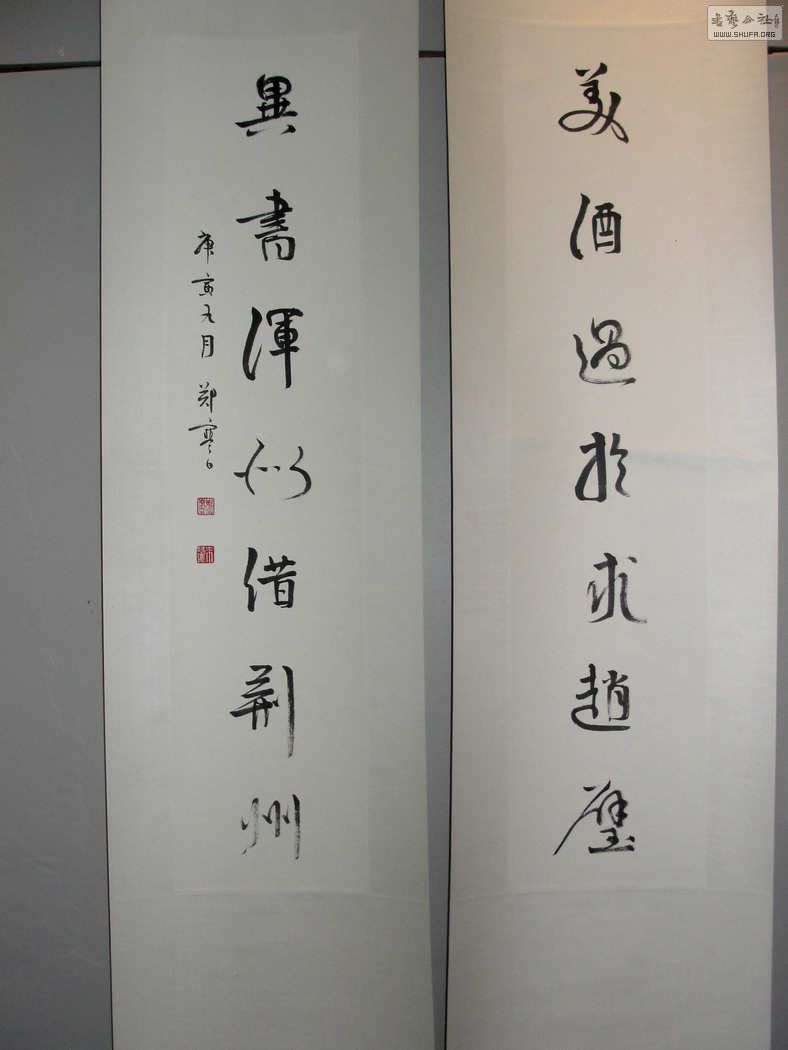 美酒過於求趙璧
異書渾似借荆州
庚寅九月 郑寒白
书艺公社
WWW.SHUFA.ORG